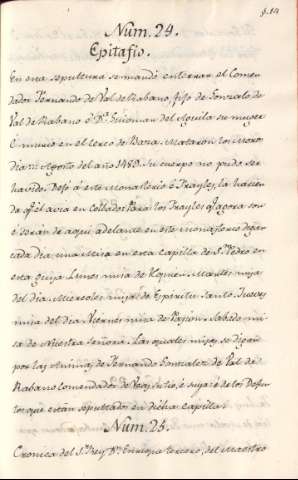 Num. 24.
Epitafio.
En esta sepultura se mandó enterrar el Comen
dador Fernando de Val de Rabano, fijo de Gonzalo de
Val de Rabano é Dª. del Aguila su muger
É murio en el cerco de Baza. Mataronlo los Moros
dia de Agosto del año 1489. Su cuerpo no pudo ser
havido. Dejó á este Monasterio é Frayles, la hacien
da qͤ el avia en Collado para los Frayles qͤ agora son
é serán de aqui adelante en este monasterio digan
cada dia una misa en esta Capilla de S. Pedro en
esta guisa Lunes misa de Requien. Martes misa
del dia. Miercoles misa de Espiritu Santo. Jueves
misa del dia. Viernes misa de Pasion. Sabado mi
sa de Nuestra Señora. Las quales misas se digan
por las Animas de Fernando Gonzalez de Val de
Rabano Comendador de é suya é de los Defun
tos que están sepultados en dicha Capilla.
Num. 25.
Cronica del Sr. Rey Dn. Enrique tercero, del Maestro